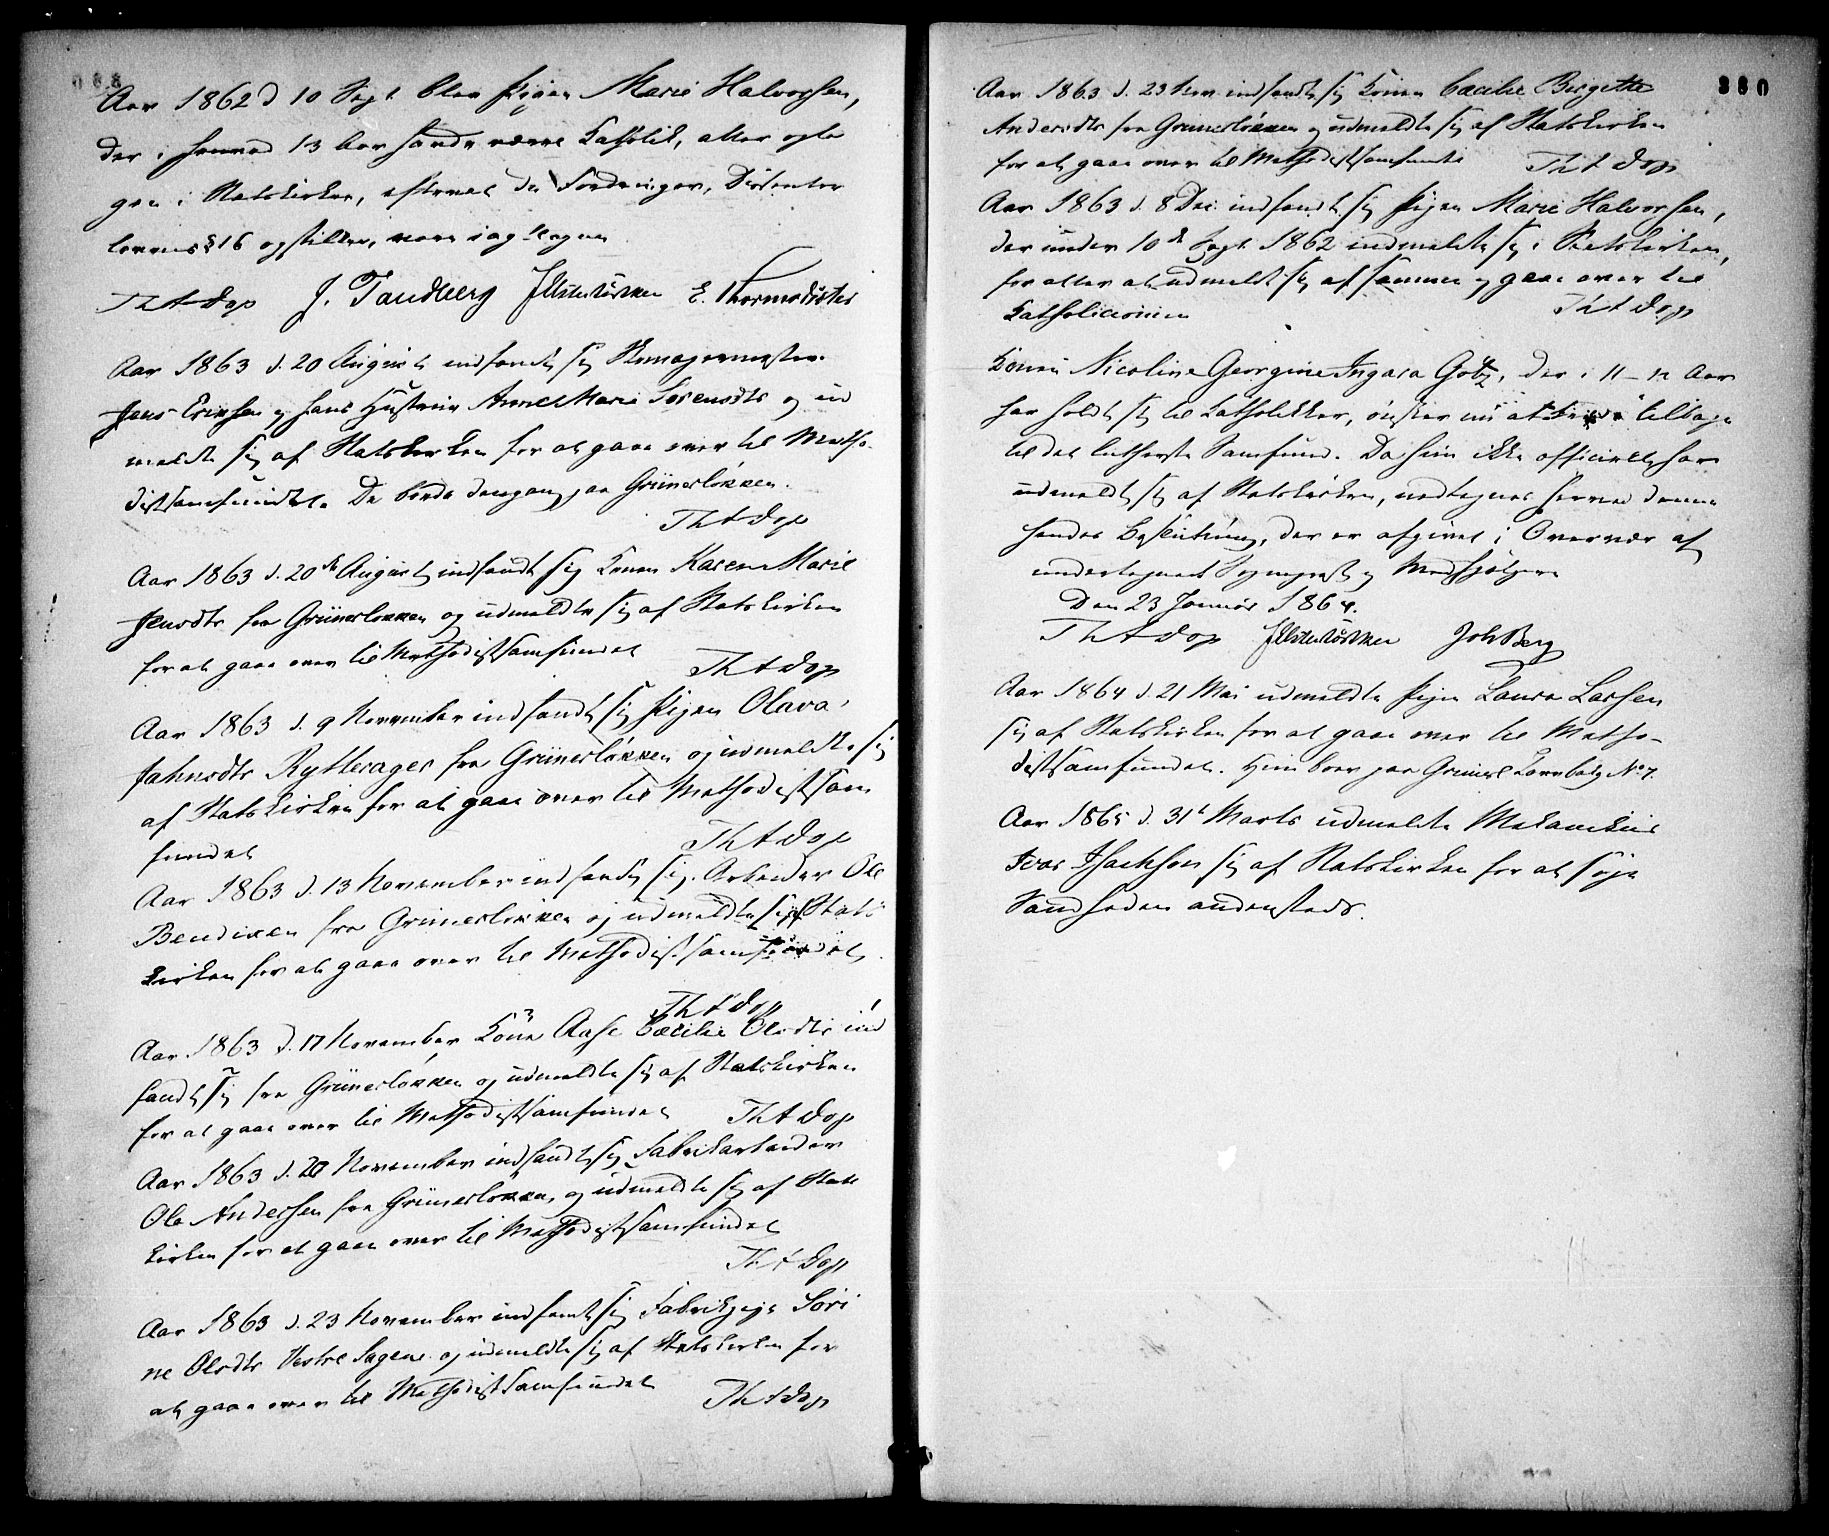 Aar 1862 d 10 Sept. blev Pigen Marie Halvorsen,
der i henved 13 Aar havde været Katholik, atter opta
gen i Statskirken, efterat de Fordringer, Dissenter
lovens § 16 opstiller, vare iagttagne
Th A Dop J. Tandberg E. Thormodsæter
Aar 1863 d. 20 August indfandt sig Skomagermester
Jens Eriksen og hans Hustru Anne Marie Sørensdtr og ud
meldte sig af Statskirken for at gaae over til Metho-
distsamfundet. De boede dengang paa Grünerløkken.
Th A Dop
Aar 1863 d. 20de August indfandt sig Konen Karen Marie
Jensdtr fra Grünerløkken og udmeldte sig af Statskirken
for at gaae over til Methodistsamfundet
Th A Dop
Aar 1863 d. 9 November indfandt sig Pigen Olava
Jahnsdtr Rytterager fra Grünerløkken og udmeldte sig
af Statskirken for at gaae over til Methodistsam
fundet
Th A Dop
Aar 1863 d. 13 November indfandt sig Arbeider Ole
Bendixen fra Grünerløkken og udmeldte sig af Stats
kirken for at gaae over til Methodistsamfundet
Th A Dop
Aar 1863 d. 17 November Kone Aase Cæcilie Olsdtr ind
fandt sig fra Grünerløkken og udmeldte sig af Statskirken
for at gaae over til Methodistsamfundet
Th A Dop
Aar 1863 d. 20 November indfandt sig Fabrikarbeider
Ole Andersen fra Grünerløkken, og udmeldte sig af Stats
kirken for at gaae over til Methodistsamfundet
Th A Dop
Aar 1863 d. 23 November indfandt sig Fabrikpige Sori
ne Olsdtr Vestre Sagene og udmeldte sig af Statskirken for
at gaae over til Methodistsamfundet
Th A Dop
380
Aar 1863 d. 23 Nov. indfandt sig Konen Cæcilie Birgitte
Andersdtr fra Grünerløkken og udmeldte sig af Statskirken
for at gaae over til Methodistsamfundet
Th A Dop
Aar 1863 d. 8 Dec. indfandt sig Pigen Marie Halvorsen,
der under 10de Sept. 1862 indmeldte sig i Statskirken,
for atter at udmelde sig af samme og gaae over til
Katholicismen
Th A Dop
Konen Nicoline Georgine Ingara Gotz, der i 11-12 Aar
har holdt sig til Katholikker, ønsker nu at træde tilbage
til det lutherske Samfund. Da hun ikke officielt har
udmeldt sig af Statskirken, modtages herved denne
hendes Beslutning, der er afgivet i Overvær af
undertegnede Sognepræst og Medhjælpere
Den 23 Januar 1864.
Th A Dop Joh Berg
Aar 1864 d. 21 Mai udmeldte Pige Laura Larsen
sig af Statskirken for at gaae over til Metho-
distsamfundet. Hun boer paa Grünerl. No 7.
Aar 1865 d. 31t Marts udmeldte Mekanikus
Ivar Isachsen sig af Statskirken for at søge
Sandheden andensteds.